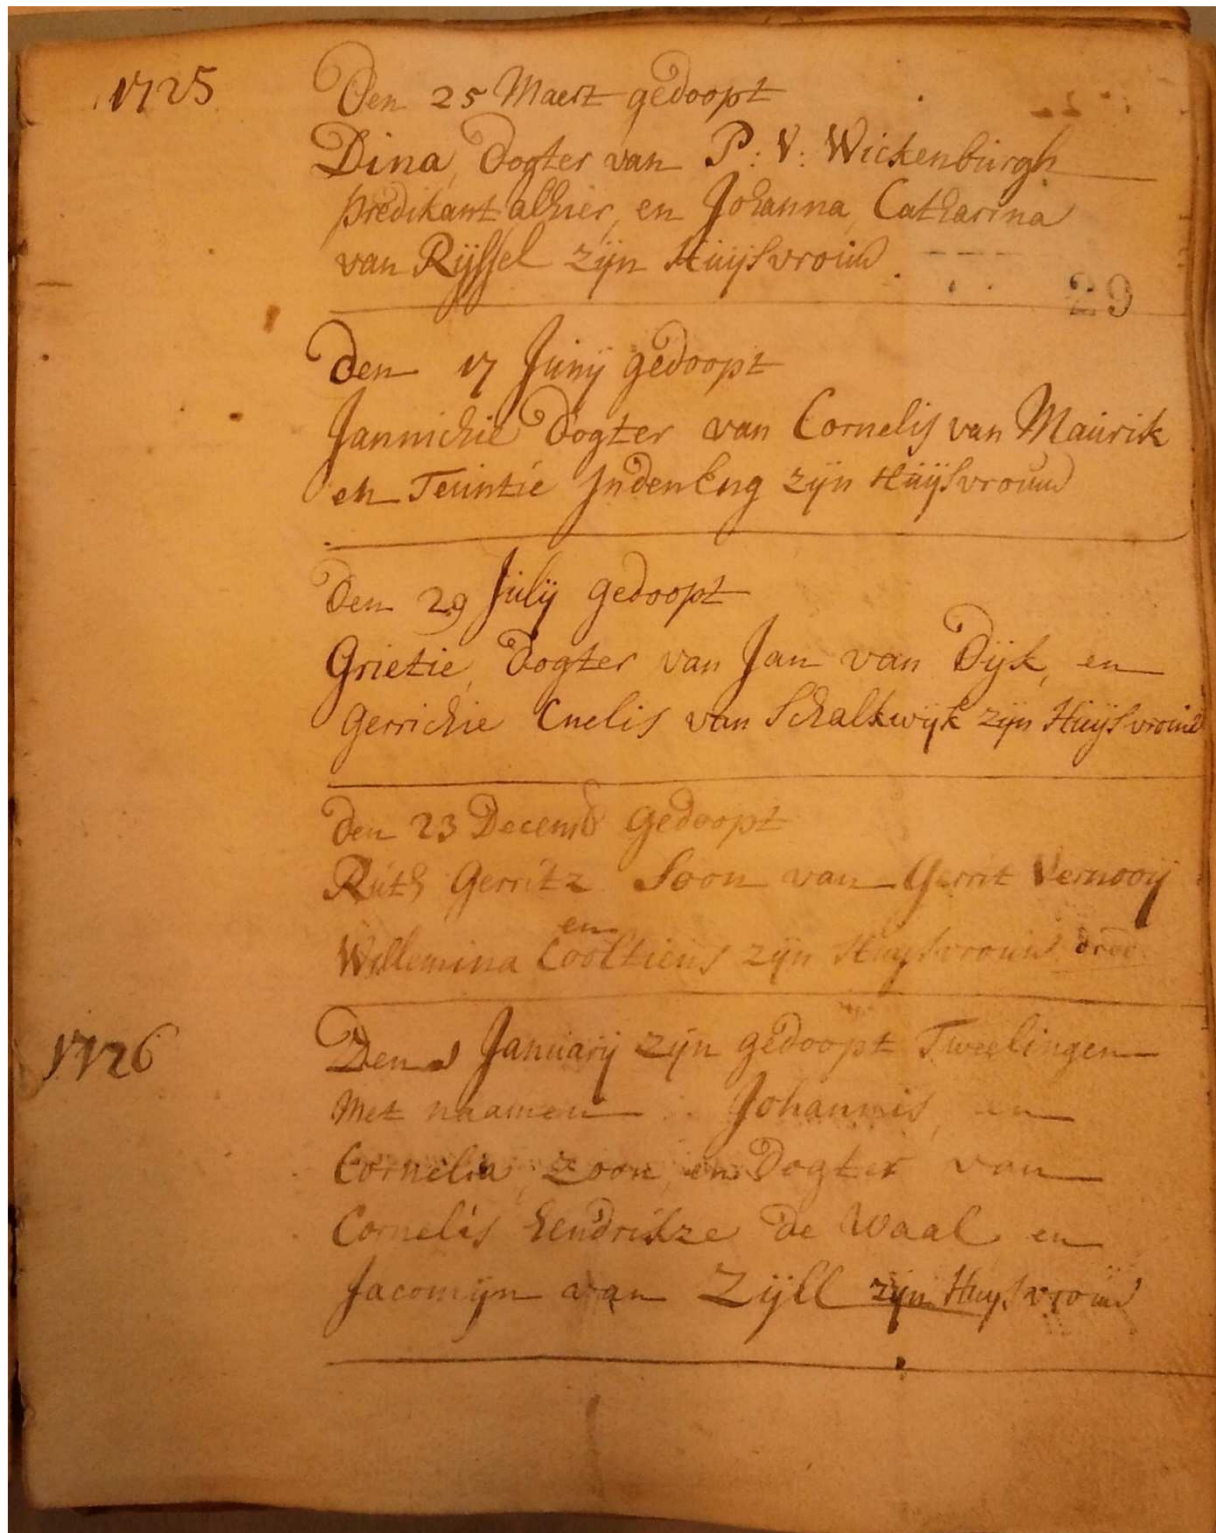 1725
Den 25 Maert gedoopt
Dina, Dogter van P: V: Wickenburgh
predikant alhier, en Johanna, Catharina
van Ryssel zijn Huijsvrouw
29
Den 17 Junij gedoopt
Jannichie Dogter van Cornelis van Maurik
en Teuntie Indeneng zijn Huijsvrouw
Den 29 Julij gedoopt
Grietie, Dogter van Jan van Dijk, en
Gerrichie Cnelis van Schalkwijk zijn Huijsvrouw
Den 23 Decemb gedoopt
Ruth Gerritz Soon van Gerrit Vernooij
en
Willemina Cooltiens zijn Huijsvrouw
1726
Den 1 Januarij zijn gedoopt Tweelingen
Met naamen Johannis, en
Cornelia, zoon, en Dogter van
Cornelis hendrikze De Waal en
Jacomijn van Zijll zijn Huijsvrouw